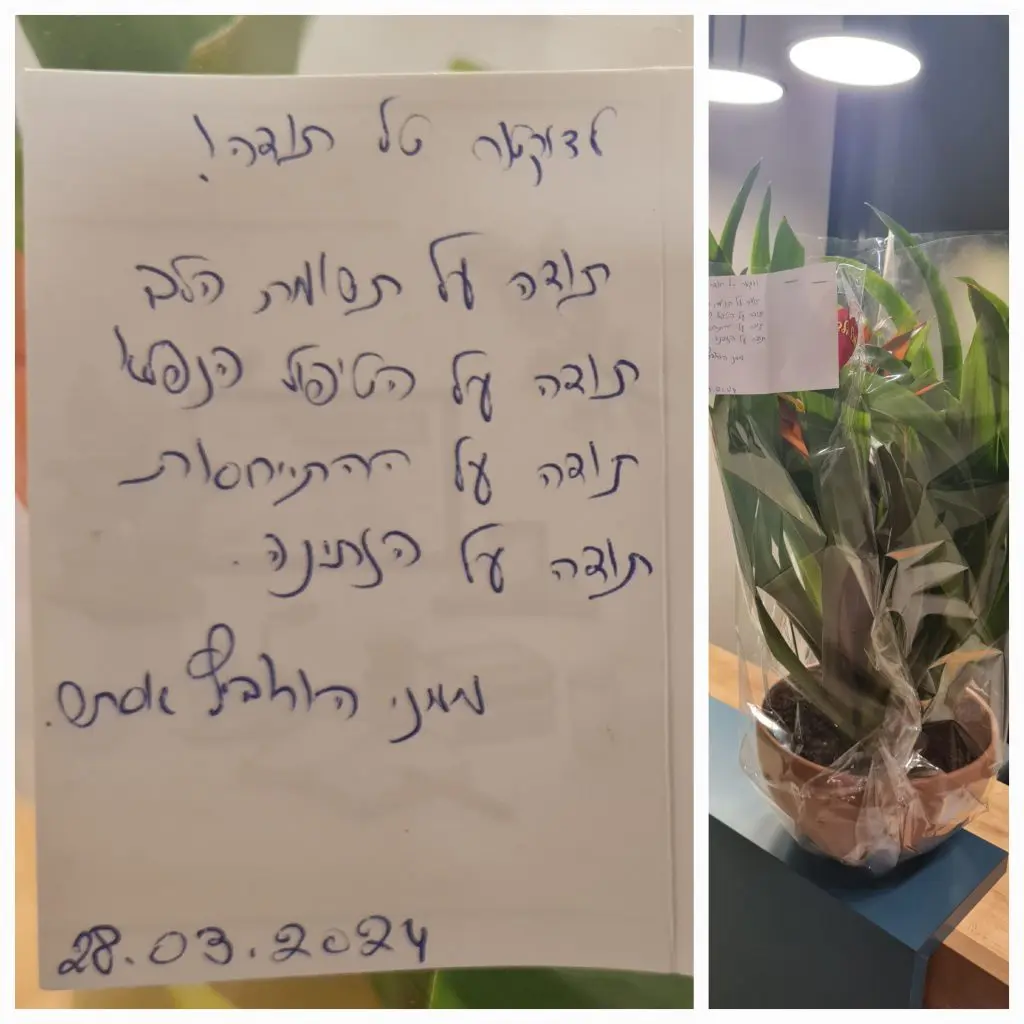 לדוקטור טל תודה!
תודה על תשומת הלב
תודה על הטיפול הנפלא
תודה על ההתייחסות
תודה על הנתינה.
אסתר.
28.03.2024